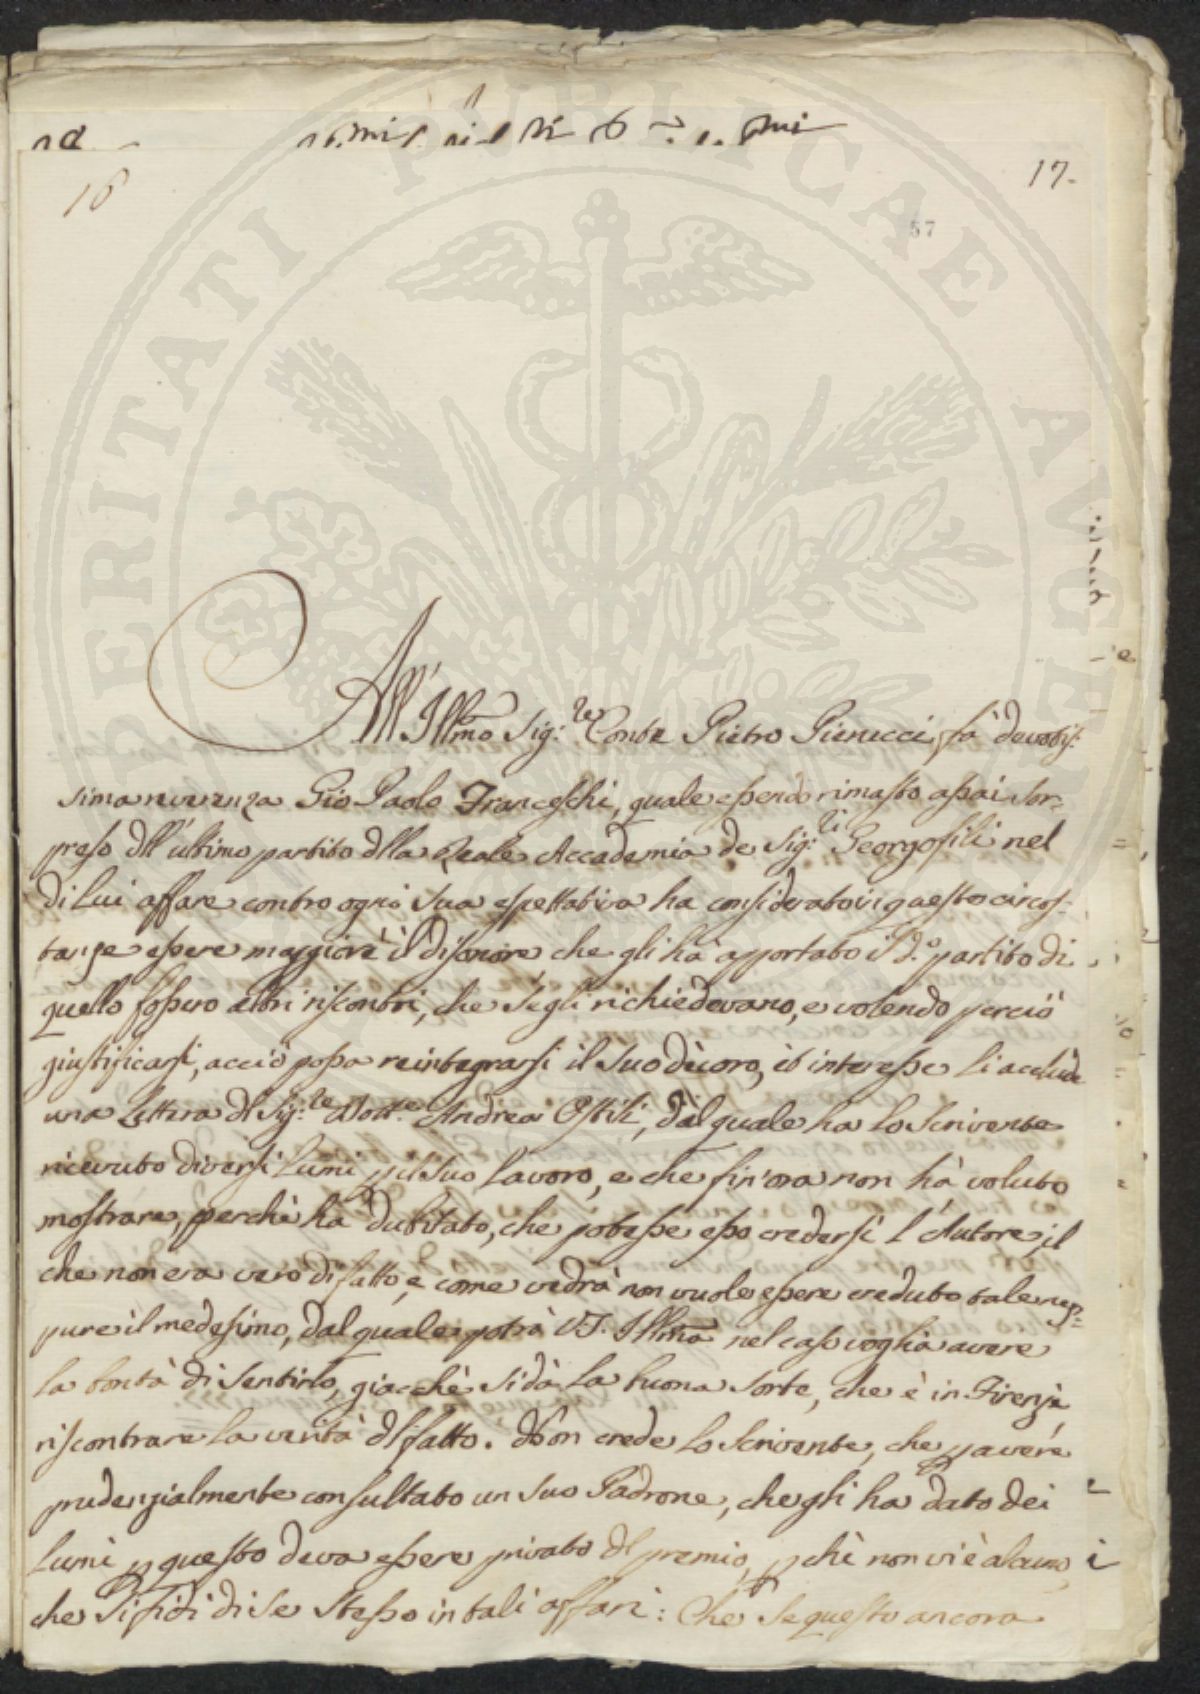 16
17.
57
All' Illmo Sig:re Conte Pietro Pierucci, fà devotis:
sima reverenza Gio Paolo Franceschi, quale essendo rimasto assai sor=
preso dll' ultimo partito dlla Reale Accademia de Sig:ri Georgofili nel
di lui affare contro ogni sua espettativa ha considerato in queste circos=
tanze essere maggiore il disonore che gli ha apportato il d.o partito di
quello fossero altri riscontri, che se gli richiedevano, e volendo perciò
giustificarsi, acciò possa reintegrarsi il suo dècoro, ed interesse li acclude
una Lettera dl Sig:re Dott.e Andrea Ostili, dal quale ha lo scrivente
ricevuto diversi lumi p il suo lavoro, e che fin'ora non hà voluto
mostrare, perchè ha dubitato, che potesse esso credersi l'Autore, il
che non era vero di fatto, e come vedrà non vuole essere creduto tale nep=
pure il medesimo, dal quale potrà VS. Illma nel caso voglia avere
la bontà di sentirlo, giacchè si dà la buona sorte, che è in Firenze,
riscontrare la verità dl fatto. Non crede lo scrivente, che p avere
prudenzialmente consultato un suo Padrone, che gli ha dato dei
lumi p questo deva essere privato dl premio, p chè non vi è alcuno,
che si fidi di se stesso in tali affari: Che se questo ancora